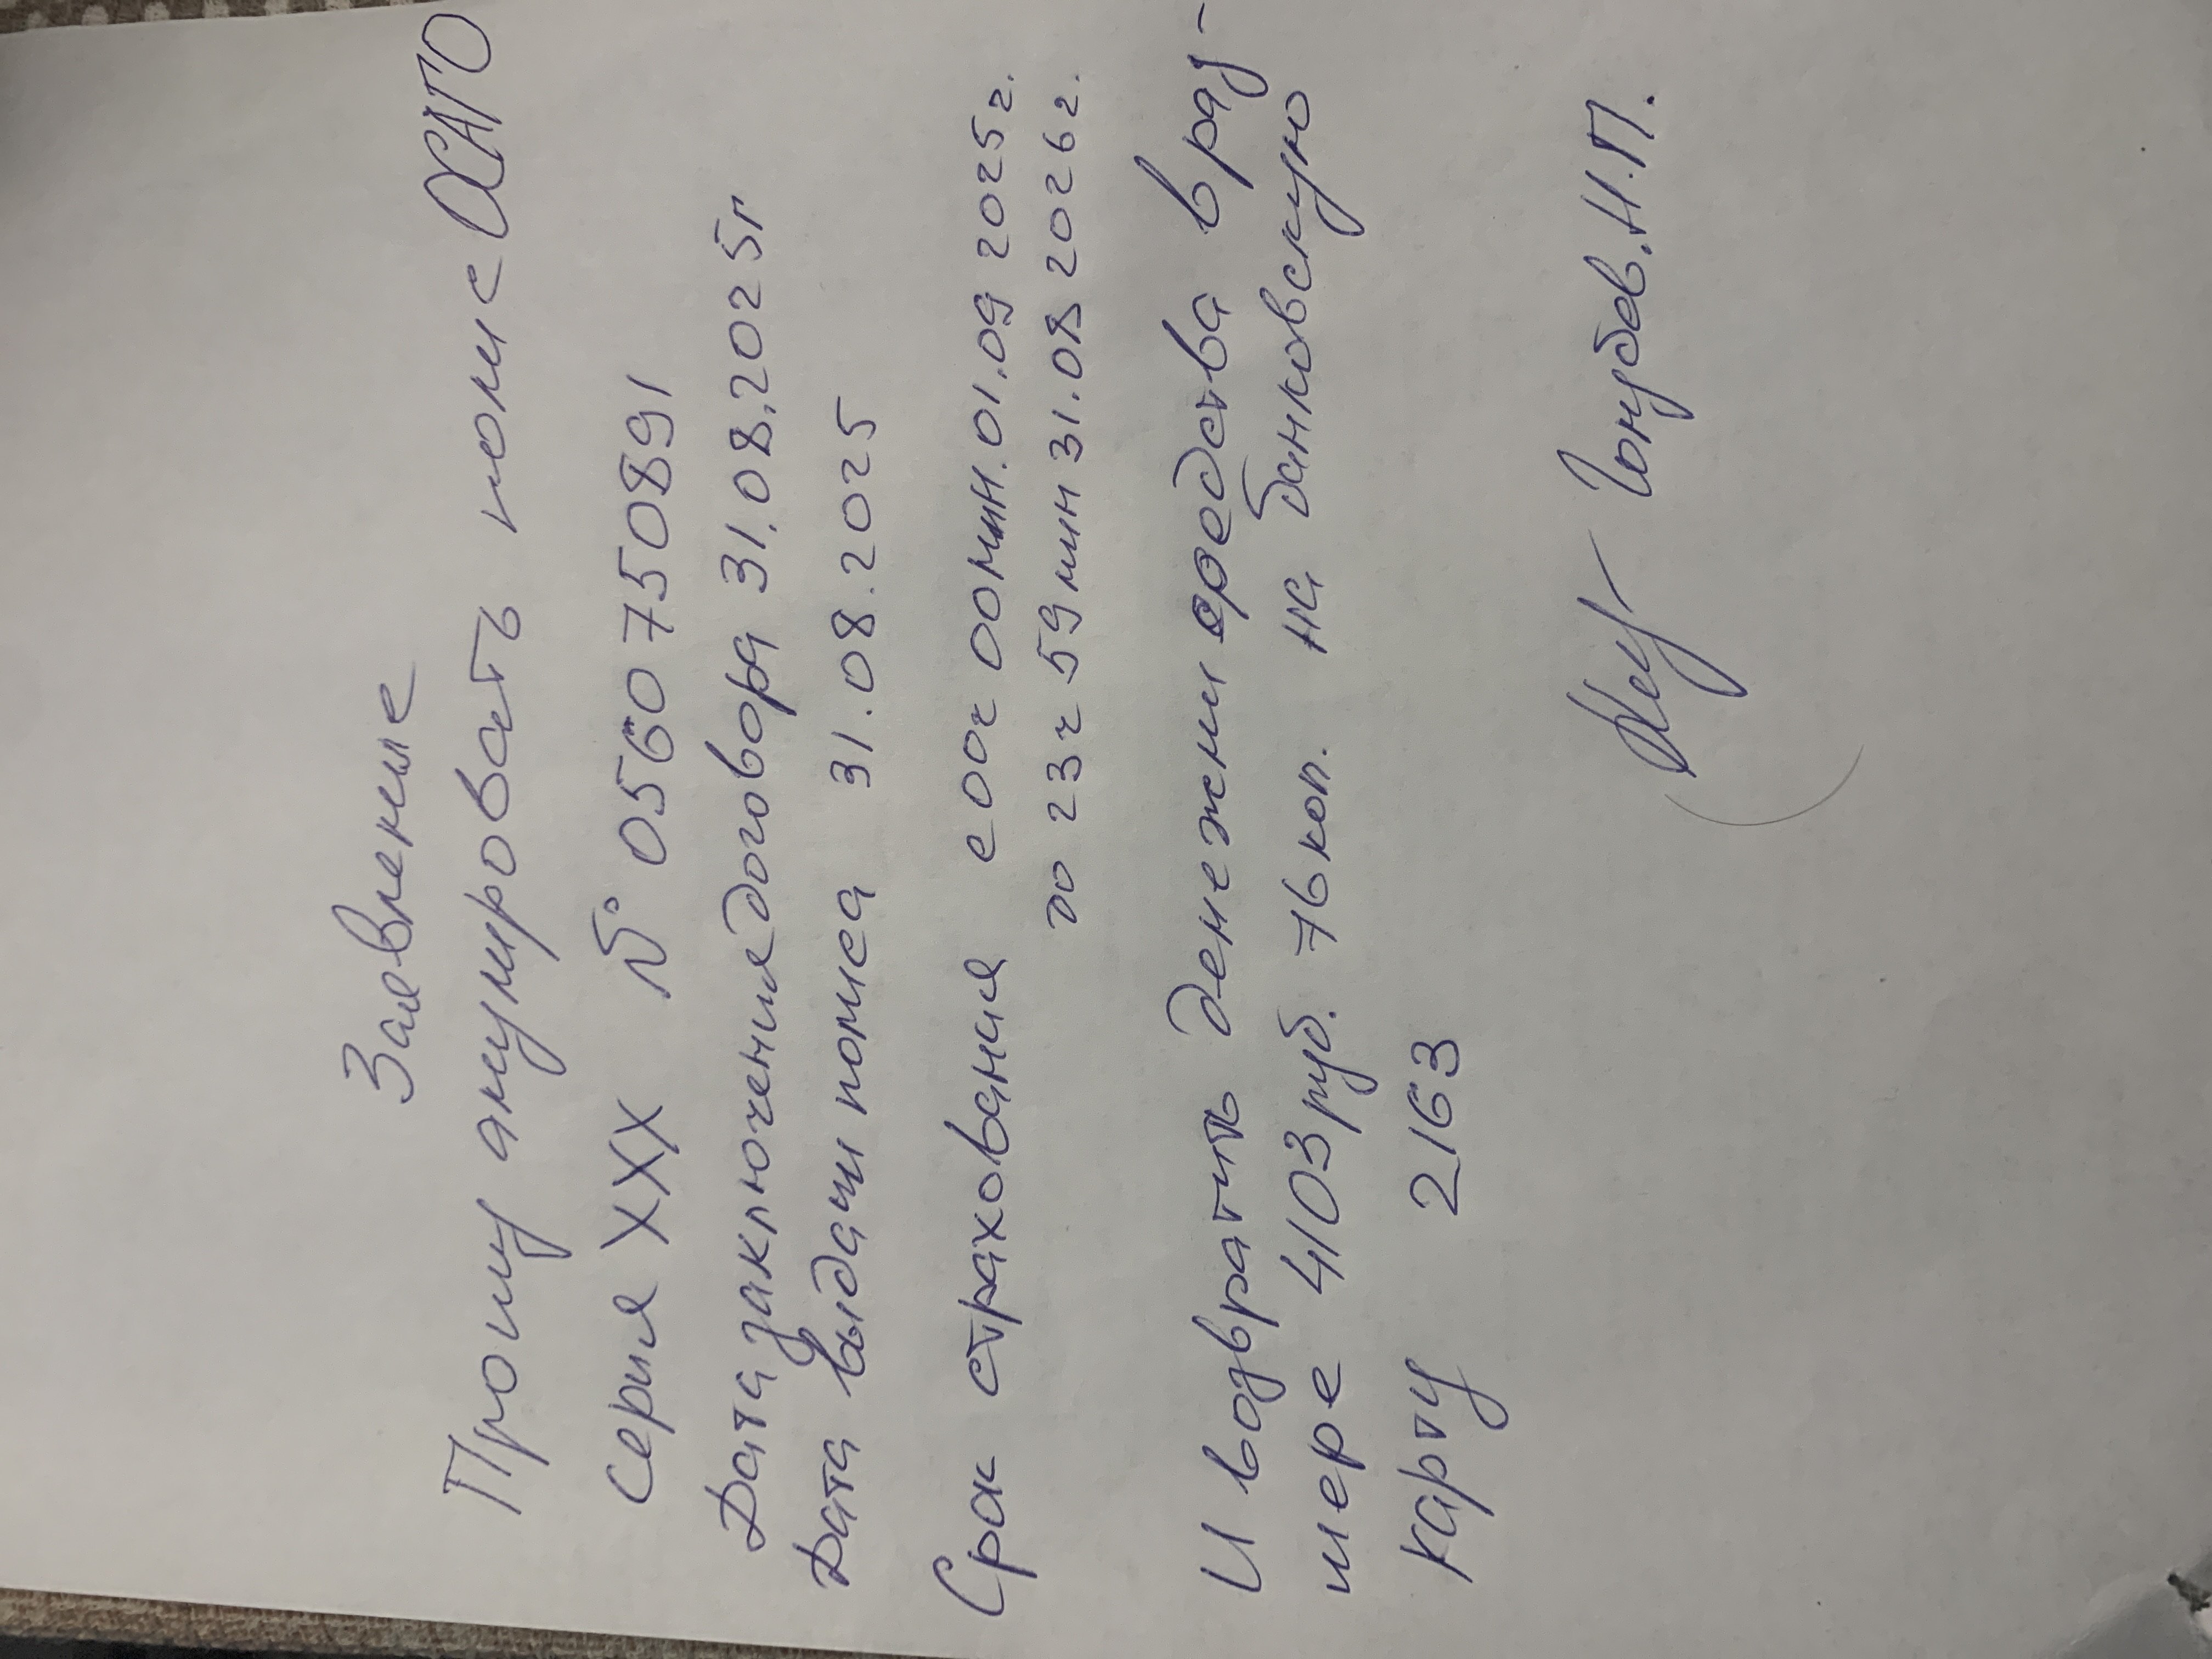 Заявление
Прошу анулировать полис ОСАГО
Серия ХХХ № 0560750891
Дата заключения договора 31.08.2025г
Дата выдачи полиса 31.08.2025
Срок страхования с 00ч 00мин. 01.09 2025г.
до 23ч 59мин 31.08 2026г.
И возвратить денежни средства в раз-
мере 4103руб. 76коп. на банковскую
карту 2163
Голубев.Н.П.